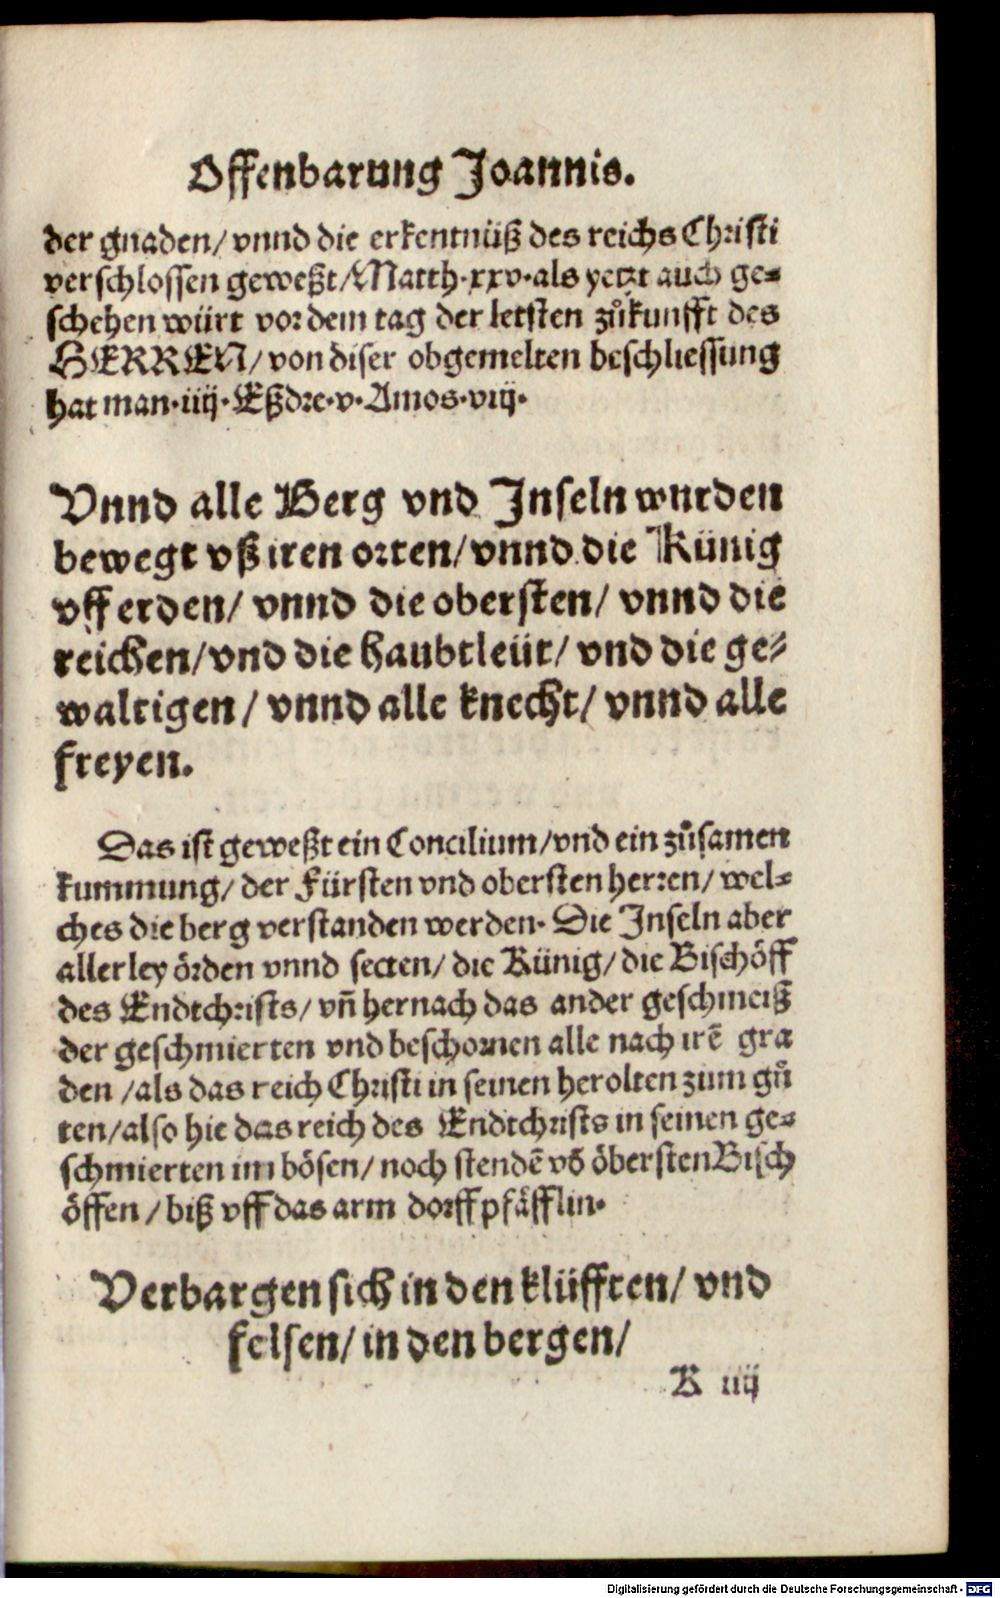 Offenbarung Joannis.
der gnaden/ vnnd die erkentnüß des reichs Christi
verschlossen geweßt/Matth.xxv.als yetzt auch ge⸗
schehen würt vor dem tag der letsten zůkunfft des
HERREN/ von diser obgemelten beschliessung
hat man.iiij.Eßdre.v.Amos.viij.
Vnnd alle Berg vnd Jnseln wurden
bewegt vß iren orten/ vnnd die Künig
vff erden/ vnnd die obersten/ vnnd die
reichen/ vnd die haubtleüt/ vnd die ge⸗
waltigen/ vnnd alle knecht/ vnnd alle
freyen.
Das ist geweßt ein Concilium/vnd ein zůsamen
kummung/ der Fürsten vnd obersten herren/ wel⸗
ches die berg verstanden werden. Die Jnseln aber
allerley örden vnnd secten/ die Künig/ die Bischöff
des Endtchrists/ vñ hernach das ander geschmeiß
der geschmierten vnd beschornen alle nach irẽ gra
den /als das reich Christi in seinen herolten zum gů
ten/also hie das reich des Endtchrists in seinen ge⸗
schmierten im bösen/ noch stendẽ võ öbersten Bisch
öffen /biß vff das arm dorffpfäfflin.
Verbargen sich in den klüfften/ vnd
felsen/ in den bergen/
K iiij
Digitalisierung gefördert durch die Deutsche Forschungsgemeinschaft - DFG